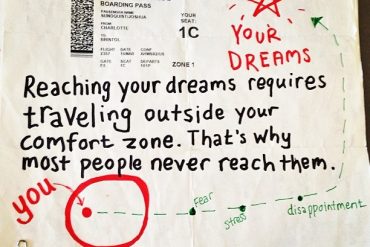 BOARDING PASS
PASSENGER NAME
SUNDQUIST/JOSHUA
FROM
CHARLOTTE
TO
BRISTOL
YOUR
SEAT:
1C
FLIGHT DATE CONF
GATE SEAT DEPARTS
ZONE 1
YOUR
DREAMS
Reaching your dreams requires
traveling outside your
comfort zone. That's why
most people never reach them.
you
fear
stress
disappointment